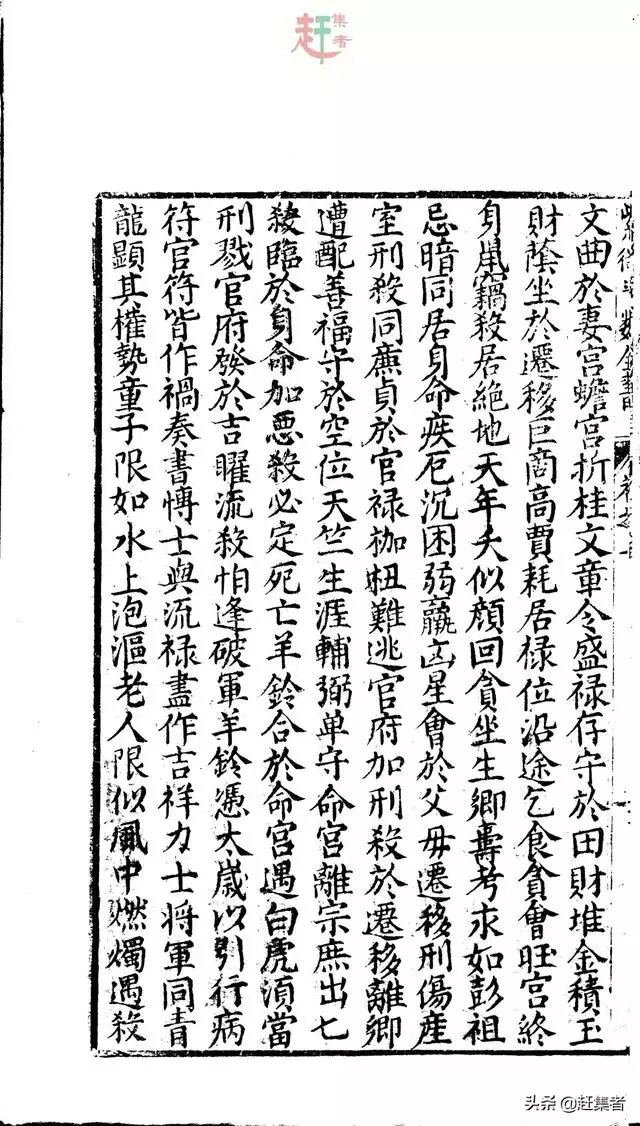 赶集者
文曲於妻宮蟾宮折桂文章令盛禄存守於田財堆金積玉
財蔭坐於遷移巨商高賈耗居禄位沿途乞食貪會旺宮終
身鼠竊殺居絶地天年夭似顔回貪坐生鄉壽考求如彭祖
忌暗同居身命疾厄沉困弱羸凶星會於父母遷移刑傷産
室刑殺同廉貞於官禄枷杻難逃官府加刑殺於遷移離鄉
遭配善福守於空位天竺生涯輔弼单守命宮離宗庶出七
殺臨於身命加惡殺必定死亡羊鈴合於命宮遇白虎湏當
刑戮官府發於吉曜流殺怕逢破軍羊鈴憑太歲以引行病
符官符皆作禍奏書博士與流禄盡作吉祥力士将軍同青
龍顯其權勢童子限如水上泡漚老人限似風中燃燭遇殺
头条 @赶集者